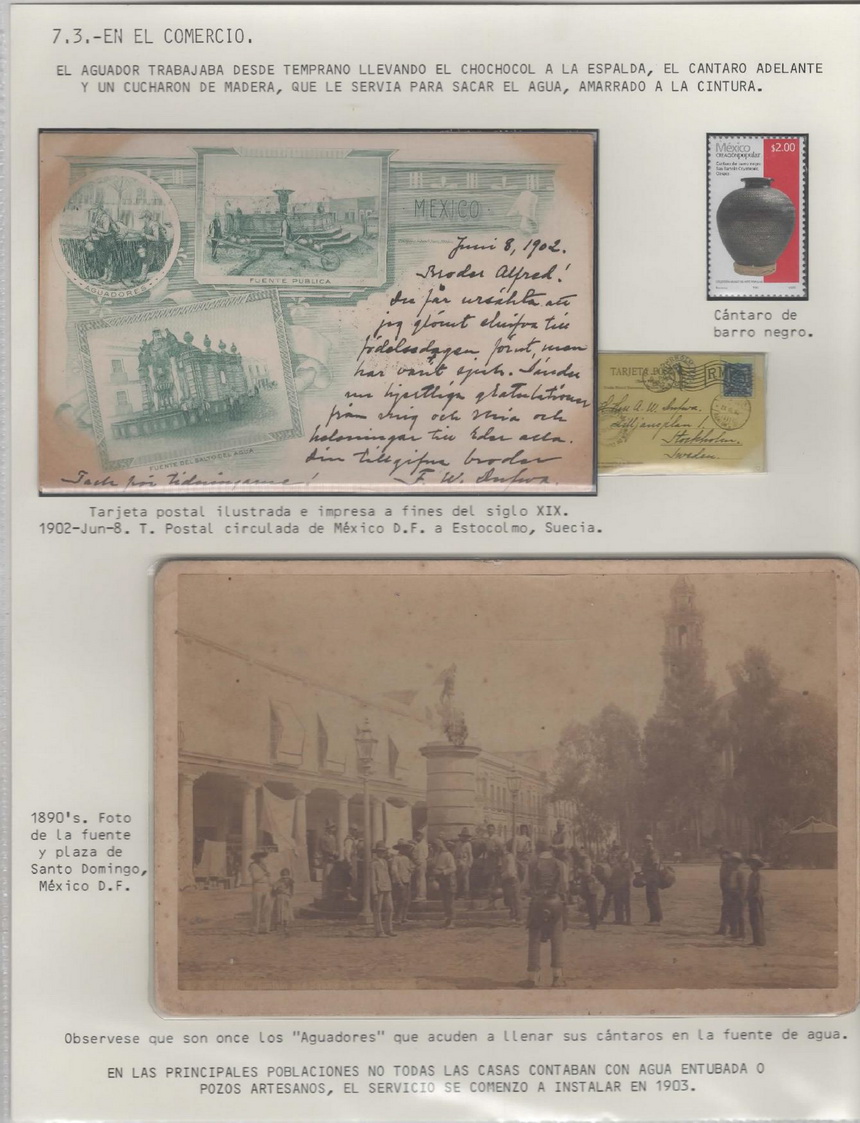 7.3.-EN EL COMERCIO.
EL AGUADOR TRABAJABA DESDE TEMPRANO LLEVANDO EL CHOCHOCOL A LA ESPALDA, EL CANTARO ADELANTE
Y UN CUCHARON DE MADERA, QUE LE SERVIA PARA SACAR EL AGUA, AMARRADO A LA CINTURA.
AGUADORES
FUENTE PUBLICA
MEXICO
FUENTE DEL SALTO DEL AGUA
Juni 8, 1902.
Broder Alfred!
Du får ursäkta att
jag glömt skrifva till
födelsedagen förut, men
har varit sjuk. Sänder
nu hjertliga gratulationer
från mig och Mia och
helsningar till Eder alla.
Din tillgifne broder
F. W.
Tack för tidningarne!
México
creaciónpopular
$2.00
Cántaro de barro negro
Cántaro de
barro negro.
TARJETA
RM
A. W.
Lilljansplan 1,
Stockholm.
Sweden.
Tarjeta postal ilustrada e impresa a fines del siglo XIX.
1902-Jun-8. T. Postal circulada de México D.F. a Estocolmo, Suecia.
1890's. Foto
de la fuente
y plaza de
Santo Domingo,
México D.F.
Observese que son once los "Aguadores" que acuden a llenar sus cántaros en la fuente de agua.
EN LAS PRINCIPALES POBLACIONES NO TODAS LAS CASAS CONTABAN CON AGUA ENTUBADA O
POZOS ARTESANOS, EL SERVICIO SE COMENZO A INSTALAR EN 1903.